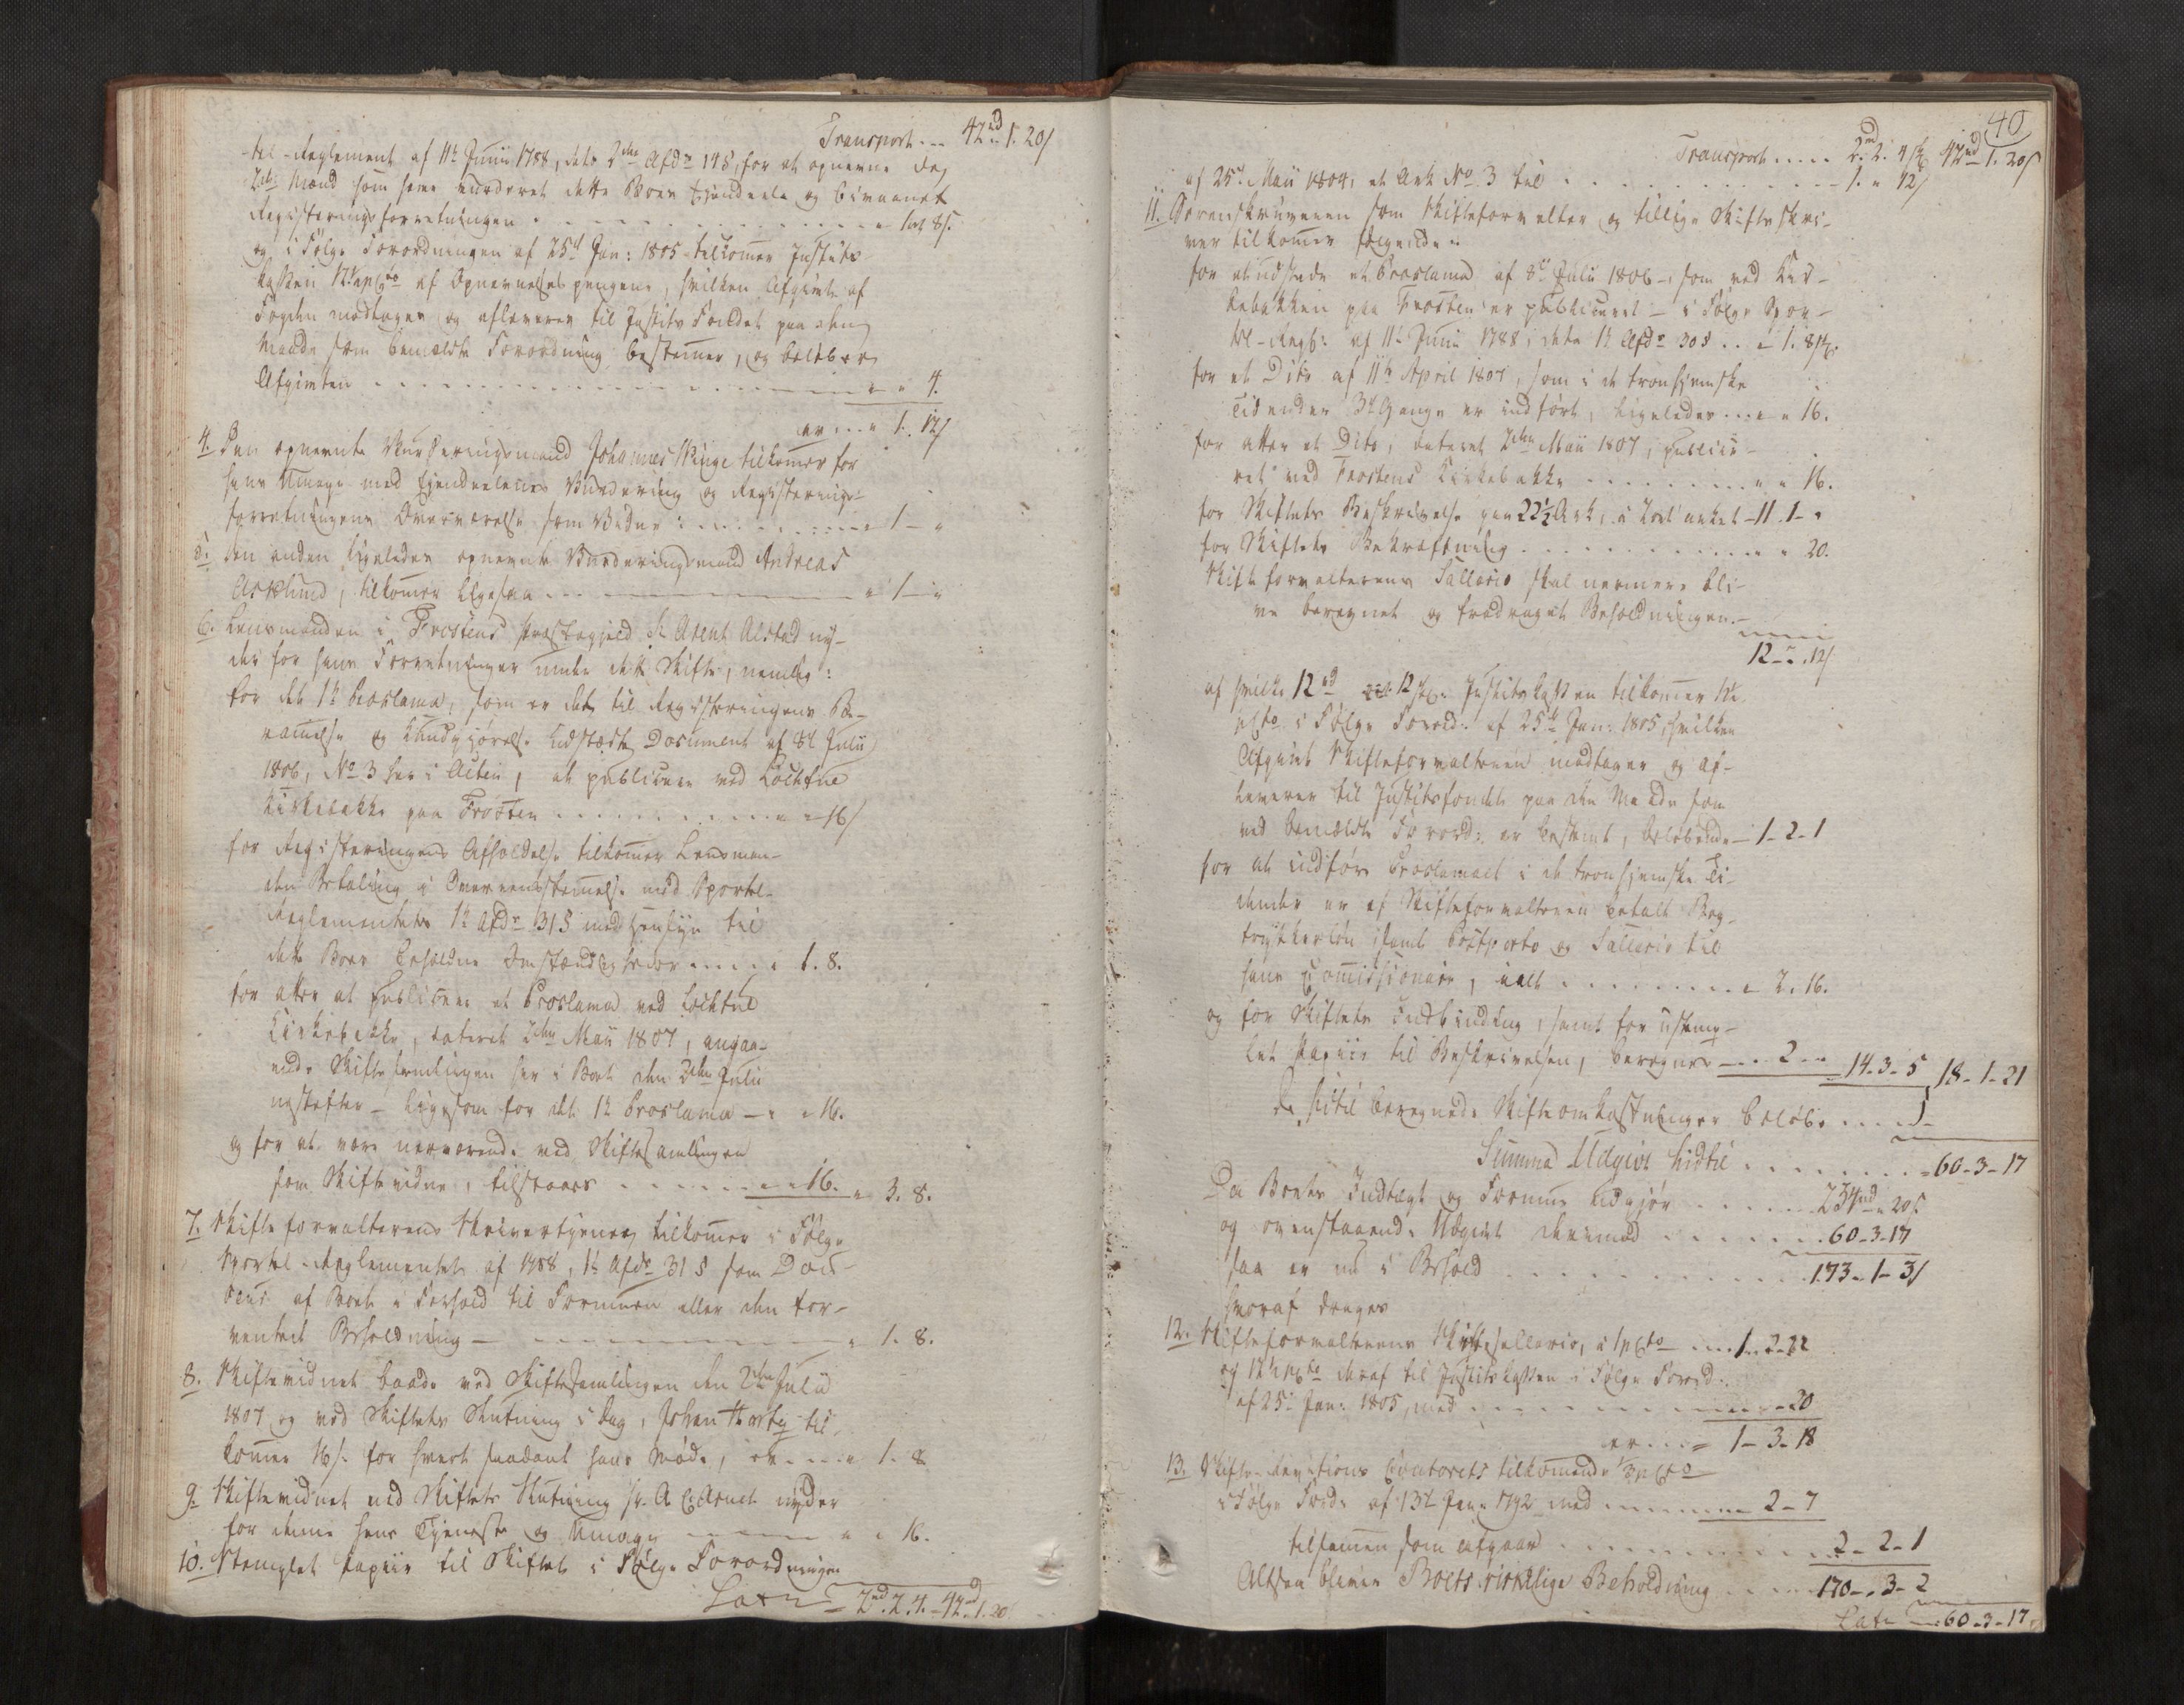 Transport --- 42rd 1. 20s
tel-Reglement af 11te Junii 1788, dets 2den Afdr 14§, for at opnevne de
2de Mænd som have vurderet dette Boes Ejendeele og bivaanet
Registeringsforretningen . . . . . 1rt 8s.
og i Følge Forordningen af 25de Jan: 1805 tilkommer Justits-
kassen 12½ pCto af Opnevnelsespengene, hvilken Afgivt af
Fogden modtages og afleveres til Justits Fondet paa den
Maade som bemeldte Forordning bestemmer, og beløber
Afgivten . . . . . " " 4.
er ... " 1. 12s
4. Den opnevnte Vurderingsmand Johannes Winge tilkommer for
hans Umage med Ejendeelenes Vurdering og Registerings-
forretningens Overværelse som Vidne: . . . . . " 1 - "
5. den anden ligeledes opnevnte Vurderingsmand Andreas
Asklund, tilkommer ligesaa . . . . " 1 - "
6. Lensmanden i Frostens Præstegjeld Sr Arent Alstad ny-
der for hans Forretninger under dette Skifte, nemlig:
for det 1te Proclama, som er det til Registeringens Be-
rammelse og Kundgjørelse udstædte Document af 8de Julii
1806, No 3 her i Acten, at publicere ved Lochtue
Kirkebakke paa Frosten . . . . . " " 16s
for Registeringens Afholdelse tilkommer Lensman-
den Betaling i Overeensstemmelse med Sportel-
Reglementets 1te Afdr 31§ med Hensyn til
dette Boes beholdne Omstændigheder . . . . " 1. 8.
for atter at publicere et Proclama ved Lochtue
Kirkebakke, dateret 2den Maii 1807, angaa-
ende Skiftesamlingen her i Boet den 2den Julii
nestefter - ligesom for det 1te Proclama - " " 16.
og for at være nærværende ved Skiftesamlingen
som Skiftevidne, tilstaaes . . . . . " " 16. " 3. 8.
7. Skifteforvalterens Skrivertjener tilkommer i Følge
Sportel-Reglementet af 1788, 1te Afdr 31 § som Dou-
ceur af Boet i Forhold til Formuen eller den for-
ventede Beholdning - . . . . " 1. 8.
8. Skiftevidnet baade ved Skiftesamlingen den 2den Julii
1807 og ved Skiftets Slutning i Dag, Johan til-
kommer 16s. for hvert saadant hans Møde, er . . . . " 1. 8
9. Skiftevidnet ved Skiftets Slutning Sr. A. C. Arnet nyder
for denne hans Tjeneste og Umage . . . . " " 16.
10. Stemplet Papiir til Skiftet i Følge Forordningen
Latus = 2rd. 2. 4. - 42rd. 1. 20
40
Transport ..... 2rd. 2. 4s 42rd 1. 20s
af 25de Maii 1804, et Ark No 3 til . . . . . - 1. " 12s
11. Sorenskriveren som Skifteforvalter og tillige Skifteskri-
ver tilkommer følgende:
for at udstæde et Proclama af 8de Julii 1806 -, som ved Kir-
kebakken paa Frosten er publiceret - i Følge Spor-
tel-Regl: af 11te Junii 1788, dets 1te Afdr 30§ .. " 1. 8s.
for et Dito af 11te April 1807, som i de tronhjemske
Tidender 3de Gange er indført, ligeledes ... " " 16.
for atter et Dito, dateret 2den Maii 1807, publice-
ret ved Frostens Kirkebakke . . . . . " " 16.
for Skiftets Beskrivelse paa 22½ Ark, à 2ort arket - 11. 1. "
for Skiftets Bekræftning . . . . . " " 20.
Skifteforvalterens Sallario skal nærmere bli-
ve beregnet og fradraget Beholdningen.-
12 - " . 12s
af hvilke 12rd 12s. Justitskassen tilkommer 12½
pCto i Følge Forord: af 25de Jan: 1805, hvilken
Afgivt Skifteforvalteren modtager og af-
leverer til Justitsfondet paa den Maade som
ved bemeldte Forord: er bestemt, beløbende - 1 - 2 - 1
for at indføre Proclamaet i de tronhjemske Ti-
dender er af Skifteforvalteren betalt Bog-
trykkerløn, samt Postporto og Sallario til
hans Commissionair, ialt . . . . . " 2. 16.
og for Skiftets Indbinding, samt for ustemp-
let Papiir til Beskrivelsen, beregnes - " 2 - " 14 - 3 - 5 18 - 1 - 21
De hidtil beregnede Skifteomkostninger beløbe . . . .
Summa Udgivt hidtil . . . . . = 60 - 3 - 17
Da Boets Indtægt og Formue udgjør . . . . . 234rd " 20s.
og ovenstaaende Udgivt derimod . . . . . 60 - 3 - 17
saa er nu i Behold . . . . . 173 - 1 - 3s
hvoraf drages
12. Skifteforvalterens Skiftesallario, à 1 pCto . . . . 1 - 2 - 22
og 12½ pCto deraf til Justitskassen i Følge Forord:
af 25de Jan: 1805, med . . . . . - 20
er . . . = 1 - 3 - 18
13. Skifte-Revisions Contoirets tilkommende ⅓ pCto
i Følge Ford: af 13de Jan: 1792 med . . . . . 2 - 7
tilsammen som afgaar . . . . . 2 - 2 - 1
Altsaa bliver Boets virkelige Beholdning . . . . . 170 - 3 - 2
Latus . . . 60 - 3 - 17.